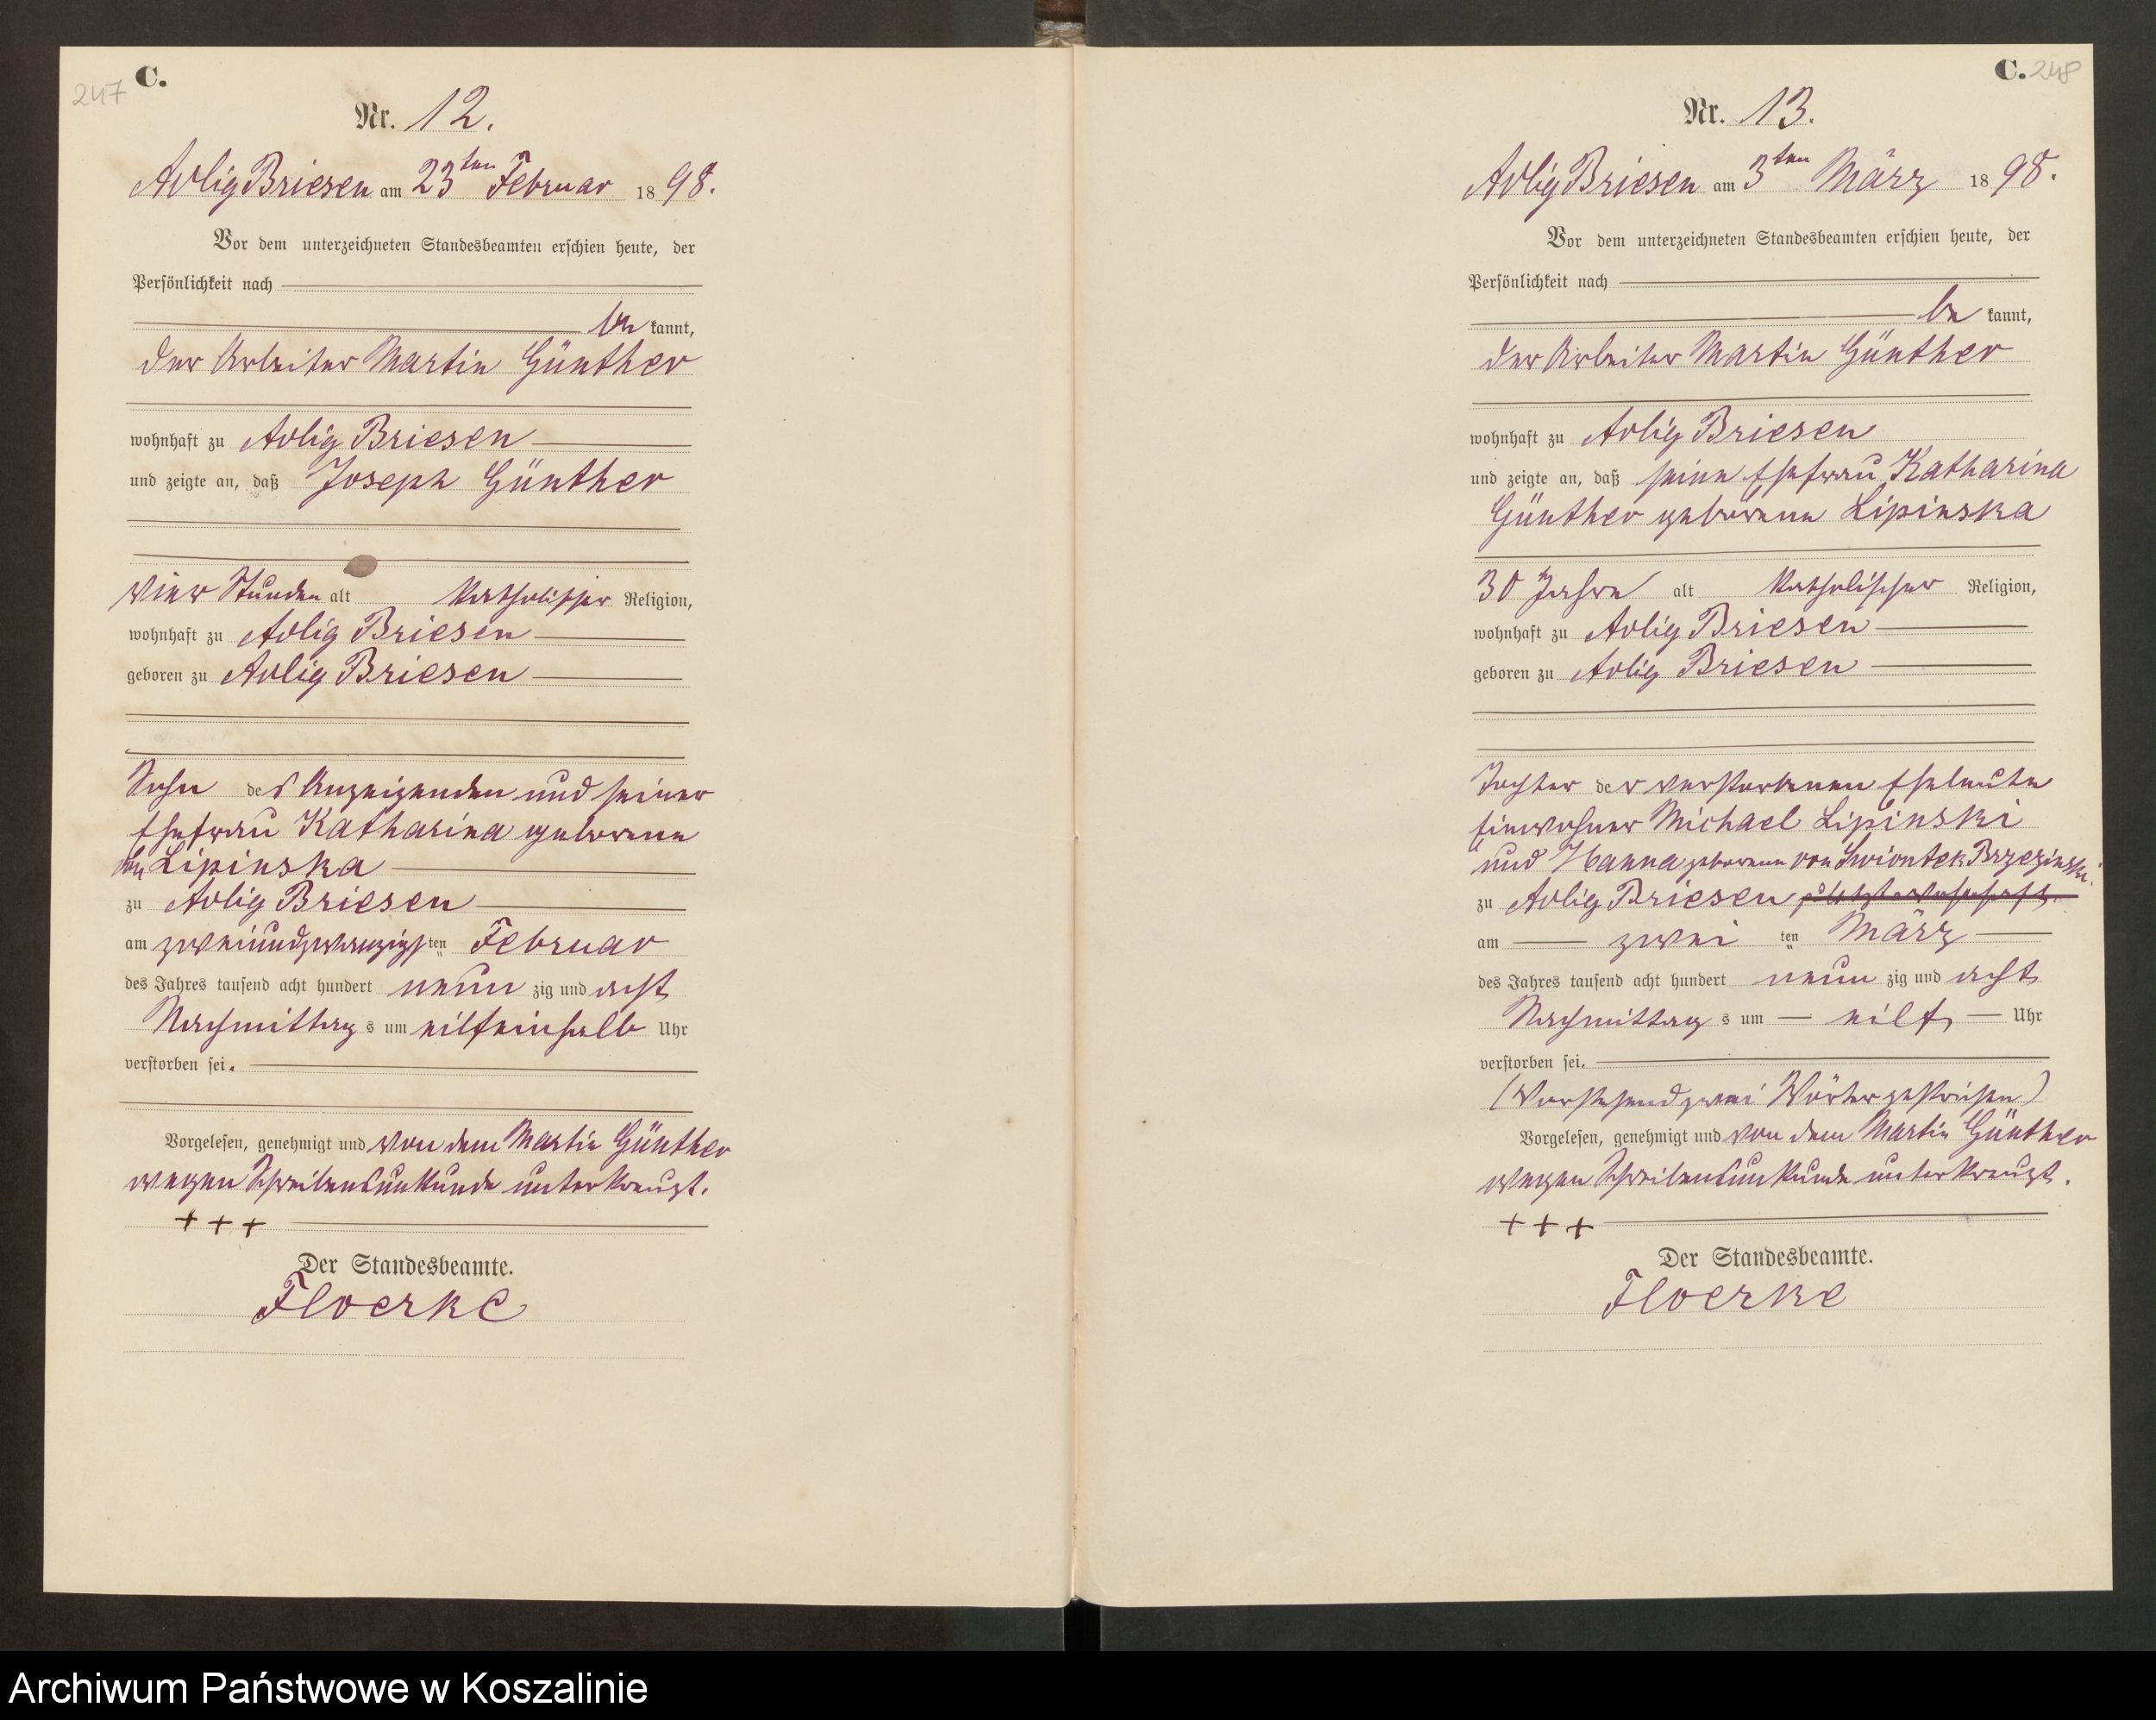 247
C.
Nr. 12.
Adlig Briesen am 23ten Februar 1898.
Vor dem unterzeichneten Standesbeamten erschien heute, der
Persönlichkeit nach
bekannt,
der Arbeiter Martin Günther
wohnhaft zu Adlig Briesen
und zeigte an, daß Joseph Günther
vier Stunden alt katholischer Religion,
wohnhaft zu Adlig Briesen
geboren zu Adlig Briesen
Sohn des Anzeigenden und seiner
Ehefrau Katharina geborene
Lipinska
zu Adlig Briesen
am zweiundzwanzigsten Februar
des Jahres tausend acht hundert neunzig und acht
Nachmittags um eilfeinhalb Uhr
verstorben sei.
Vorgelesen, genehmigt und von dem Martin Günther
wegen Schreibensunkunde unterkreuzt.
+ + +
Der Standesbeamte.
Floerke
C. 248
Nr. 13.
Adlig Briesen am 3ten März 1898.
Vor dem unterzeichneten Standesbeamten erschien heute, der
Persönlichkeit nach
bekannt,
der Arbeiter Martin Günther
wohnhaft zu Adlig Briesen
und zeigte an, daß seine Ehefrau Katharina
Günther geborene Lipinska
30 Jahre alt katholischer Religion,
wohnhaft zu Adlig Briesen
geboren zu Adlig Briesen
Tochter der verstorbenen Eheleute
Einwohner Michael Lipinski
und Hanna geborene von Swiontek Brzezinski
zu Adlig Briesen
am zweiten März
des Jahres tausend acht hundert neunzig und acht
Nachmittags um eilf Uhr
verstorben sei.
(Vorstehend zwei Wörter gestrichen)
Vorgelesen, genehmigt und von dem Martin Günther
wegen Schreibensunkunde unterkreuzt.
+ + +
Der Standesbeamte.
Floerke
Archiwum Państwowe w Koszalinie